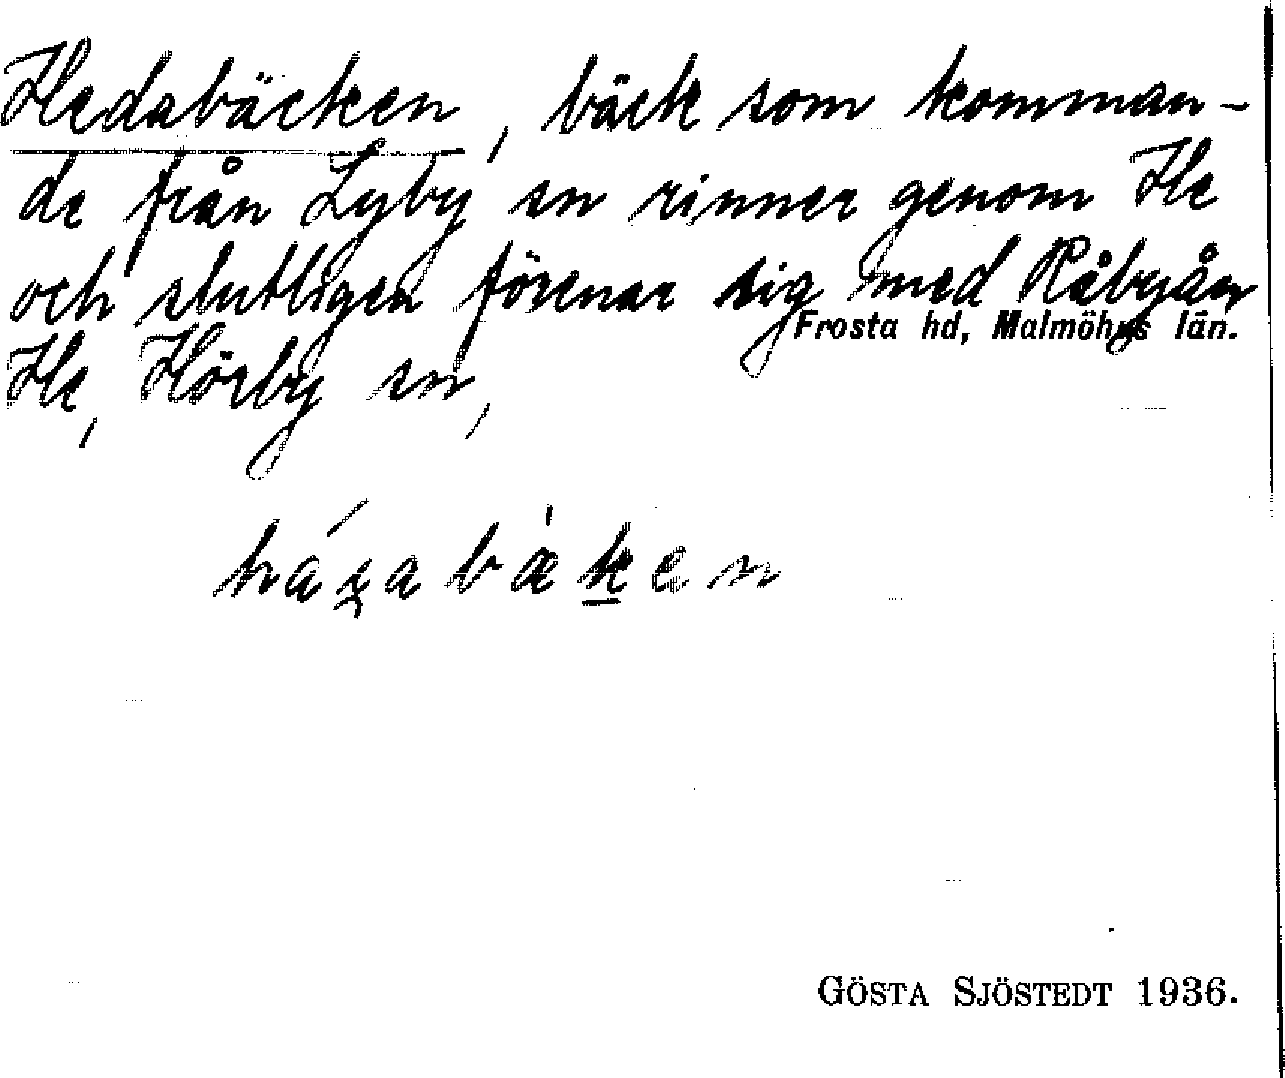 Hedabäcken, bäck som komman-
de från Lyby sn rinner genom He
och slutligen förenar sig med Råbyån
Frosta hd, Malmöhus län.
He, Hörby sn,
GÖSTA SJÖSTEDT 1936.